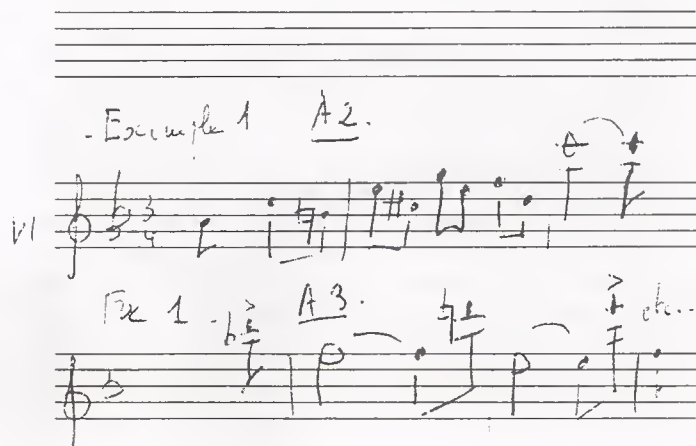 - Example 1 A2.
Vl 3 4
Ex 1 - A3. etc...